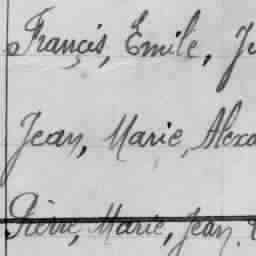 Françis, Emile, Ju
Jean, Marie, Alexa
Pierre, Marie, Jean,